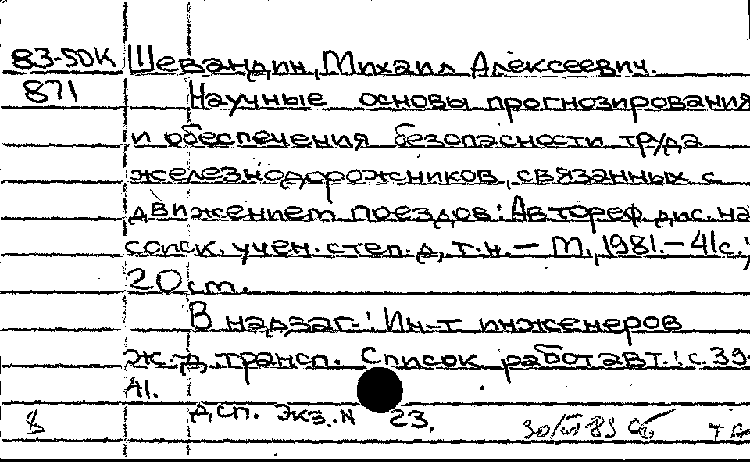 83-5ДК Шевандин, Михаил Алексеевич.
871 Научные основы прогнозирования
и обеспечения безопасности труда
железнодорожников, связанных с
движением поездов: Автореф. дис. на
соиск. учен. степ. д.т.н. - М., 1981. - 41с.;
20см.
В надзаг.: Ин-т инженеров
ж.-д. трансп. Список работ авт.: с. 39-
41.
8 ДСП. Экз. N 23.